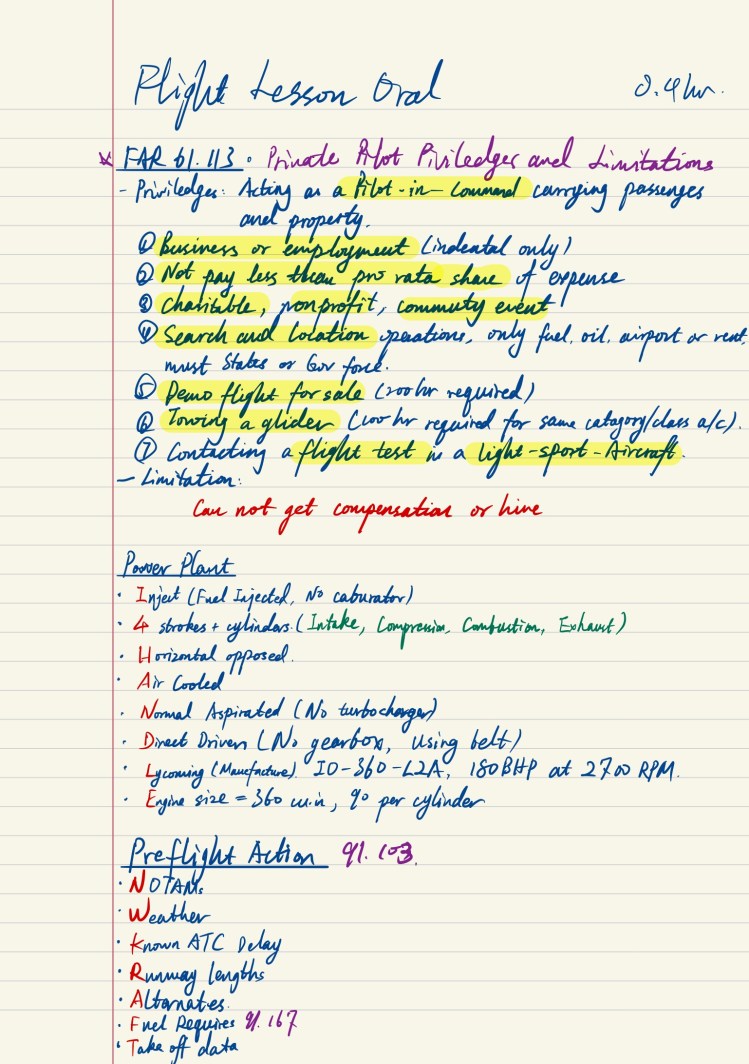 Flight Lesson Oral 0.9hr.
FAR 61.113. Private Pilot Priviledges and Limitations
- Priviledges: Acting as a Pilot-in-Command carrying passenges
and property.
① Business or employment (indental only)
② Not pay less than pro rata share of expense
③ Charitable, nonprofit, commuty event
④ Search and Location operations, only fuel, oil, airport or rent,
must States or Gov force.
⑤ Demo flight for sale (200hr required)
⑥ Towing a glider (100hr required for same catagory/class a/c).
⑦ Contacting a flight test in a light-sport-Aircraft.
- Limitation:
Can not get compensation or hire
Power Plant
· Inject (Fuel Injected, No caburator)
· 4 strokes + cylinders. (Intake, Compression, Combustion, Exhaust)
· Horizontal opposed.
· Air Cooled
· Normal Aspirated (No turbocharger)
· Direct Driven (No gearbox, using belt)
· Lycoming (Manufacture). IO-360-L2A, 180BHP at 2700 RPM.
· Engine size = 360 cu.in, 90 per cylinder
Preflight Action 91.103.
· NOTAMs
· Weather
· Known ATC Delay
· Runway lengths
· Alternaties.
· Fuel Requires 91.167
· Take off data